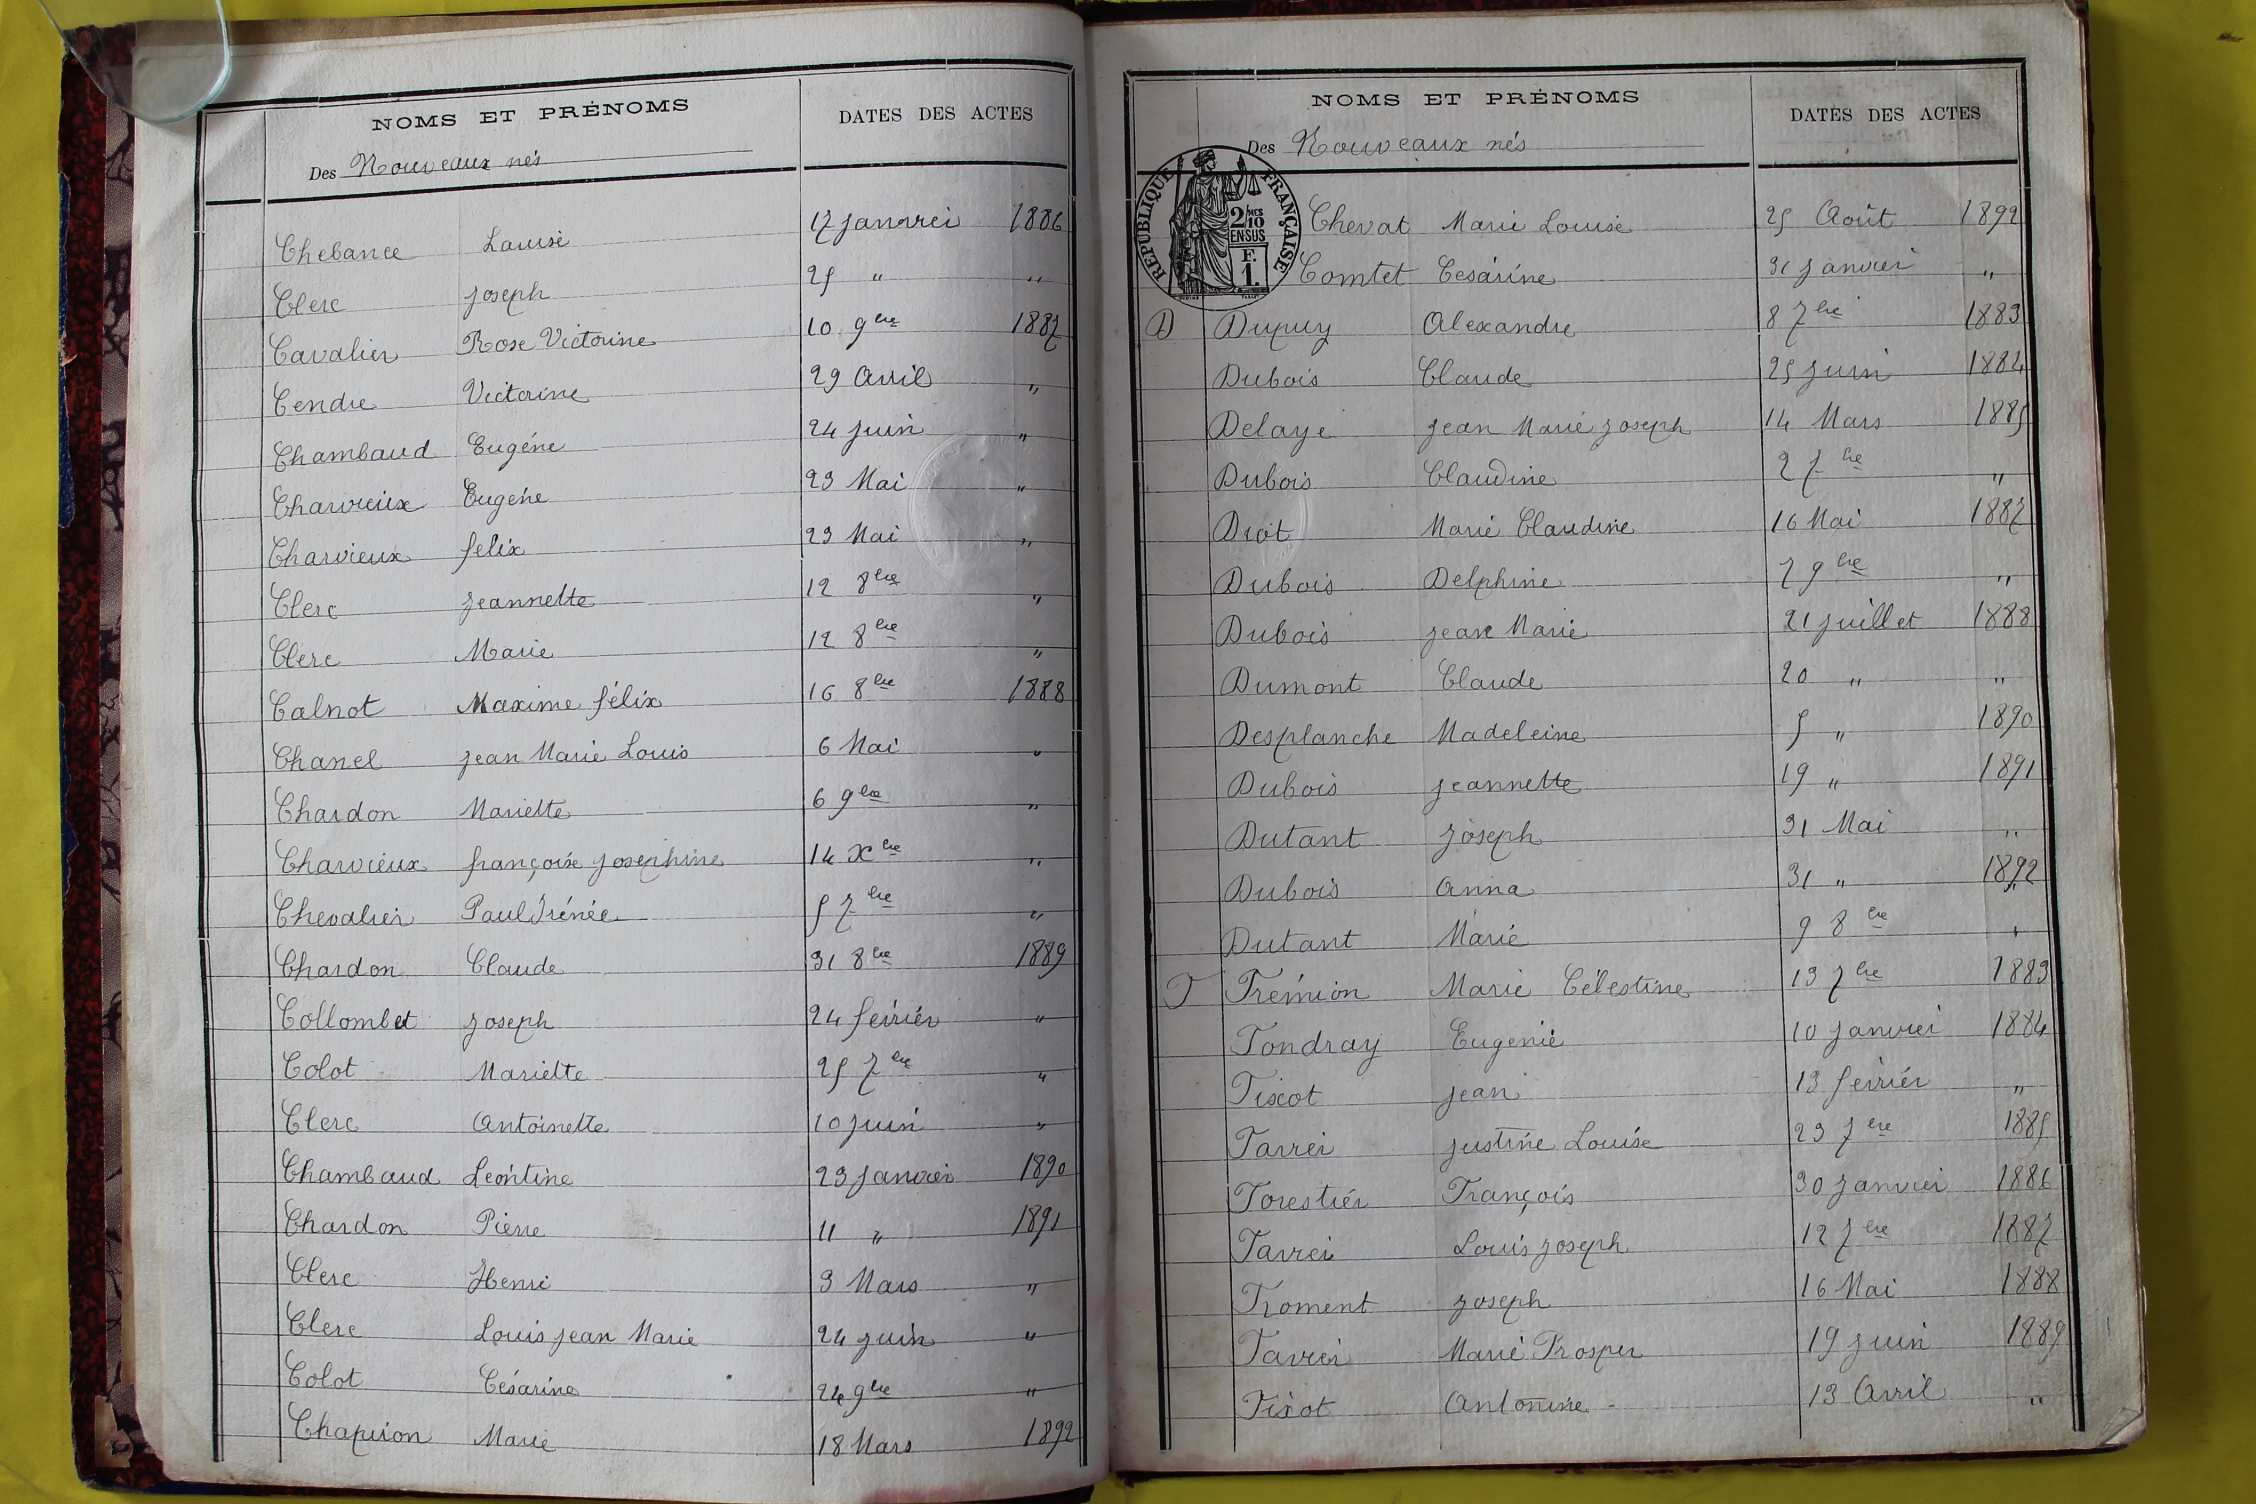 NOMS ET PRÉNOMS DATES DES ACTES
Des Nouveaux nés
Chebance Louise 17 janvrei 1886
Clerc joseph 25 " "
Cavalier Rose Victorine 10 9bre 1887
Cendre Victorine 29 Avril "
Chambaud Eugéne 24 juin "
Charvieux Eugéne 23 Mai "
Charvieux felix 23 Mai "
Clerc jeannette 12 8bre "
Clerc Marie 12 8bre "
Calnot Maxime félix 16 8bre 1888
Chanel jean Marie Louis 6 Mai "
Chardon Mariette 6 9bre "
Charvieux françoise josephine 14 Xbre "
Chevalier Paul Irénée 5 7bre "
Chardon Claude 31 8bre 1889
Collombet joseph 24 feirier "
Colot Mariette 25 7bre "
Clerc Antoinette 10 juin "
Chambaud Leontine 23 janvier 1890
Chardon Pierre 11 " 1891
Clerc Henri 3 Mars "
Clerc Louis jean Marie 24 juin "
Colot Césarine 24 9bre "
Chapuion Marie 18 Mars 1892
NOMS ET PRÉNOMS DATES DES ACTES
Des Nouveaux nés
RÉPUBLIQUE FRANÇAISE
2/MES
10
EN SUS
F.
1.
Chevat Marie Louise 25 Août 1892
Comtet Cesárine 31 janvier "
D Dupuy Alexandre 8 7bre 1883
Dubois Claude 25 juin 1884
Delaye jean Marie joseph 14 Mars 1885
Dubois Claudine 2 7bre "
Droit Marie Claudine 16 Mai 1887
Dubois Delphine 7 9bre "
Dubois jean Marie 21 juillet 1888
Dumont Claude 20 " "
Desplanche Madeleine 5 " 1890
Dubois jeannette 19 " 1891
Dutant joseph 31 Mai "
Dubois Anna 31 " 1892
Dutant Marie 9 8bre "
F Frémion Marie Célestine 13 7bre 1883
Fondray Eugenie 10 janvrei 1884
Fixot jean 13 feirier "
Favrei justine Louise 23 7bre 1885
Forestier François 30 janvier 1886
Favrei Louis joseph 12 7bre 1887
Froment joseph 16 Mai 1888
Favrei Marie Prosper 19 juin 1889
Fixot Antonine 13 Avril "